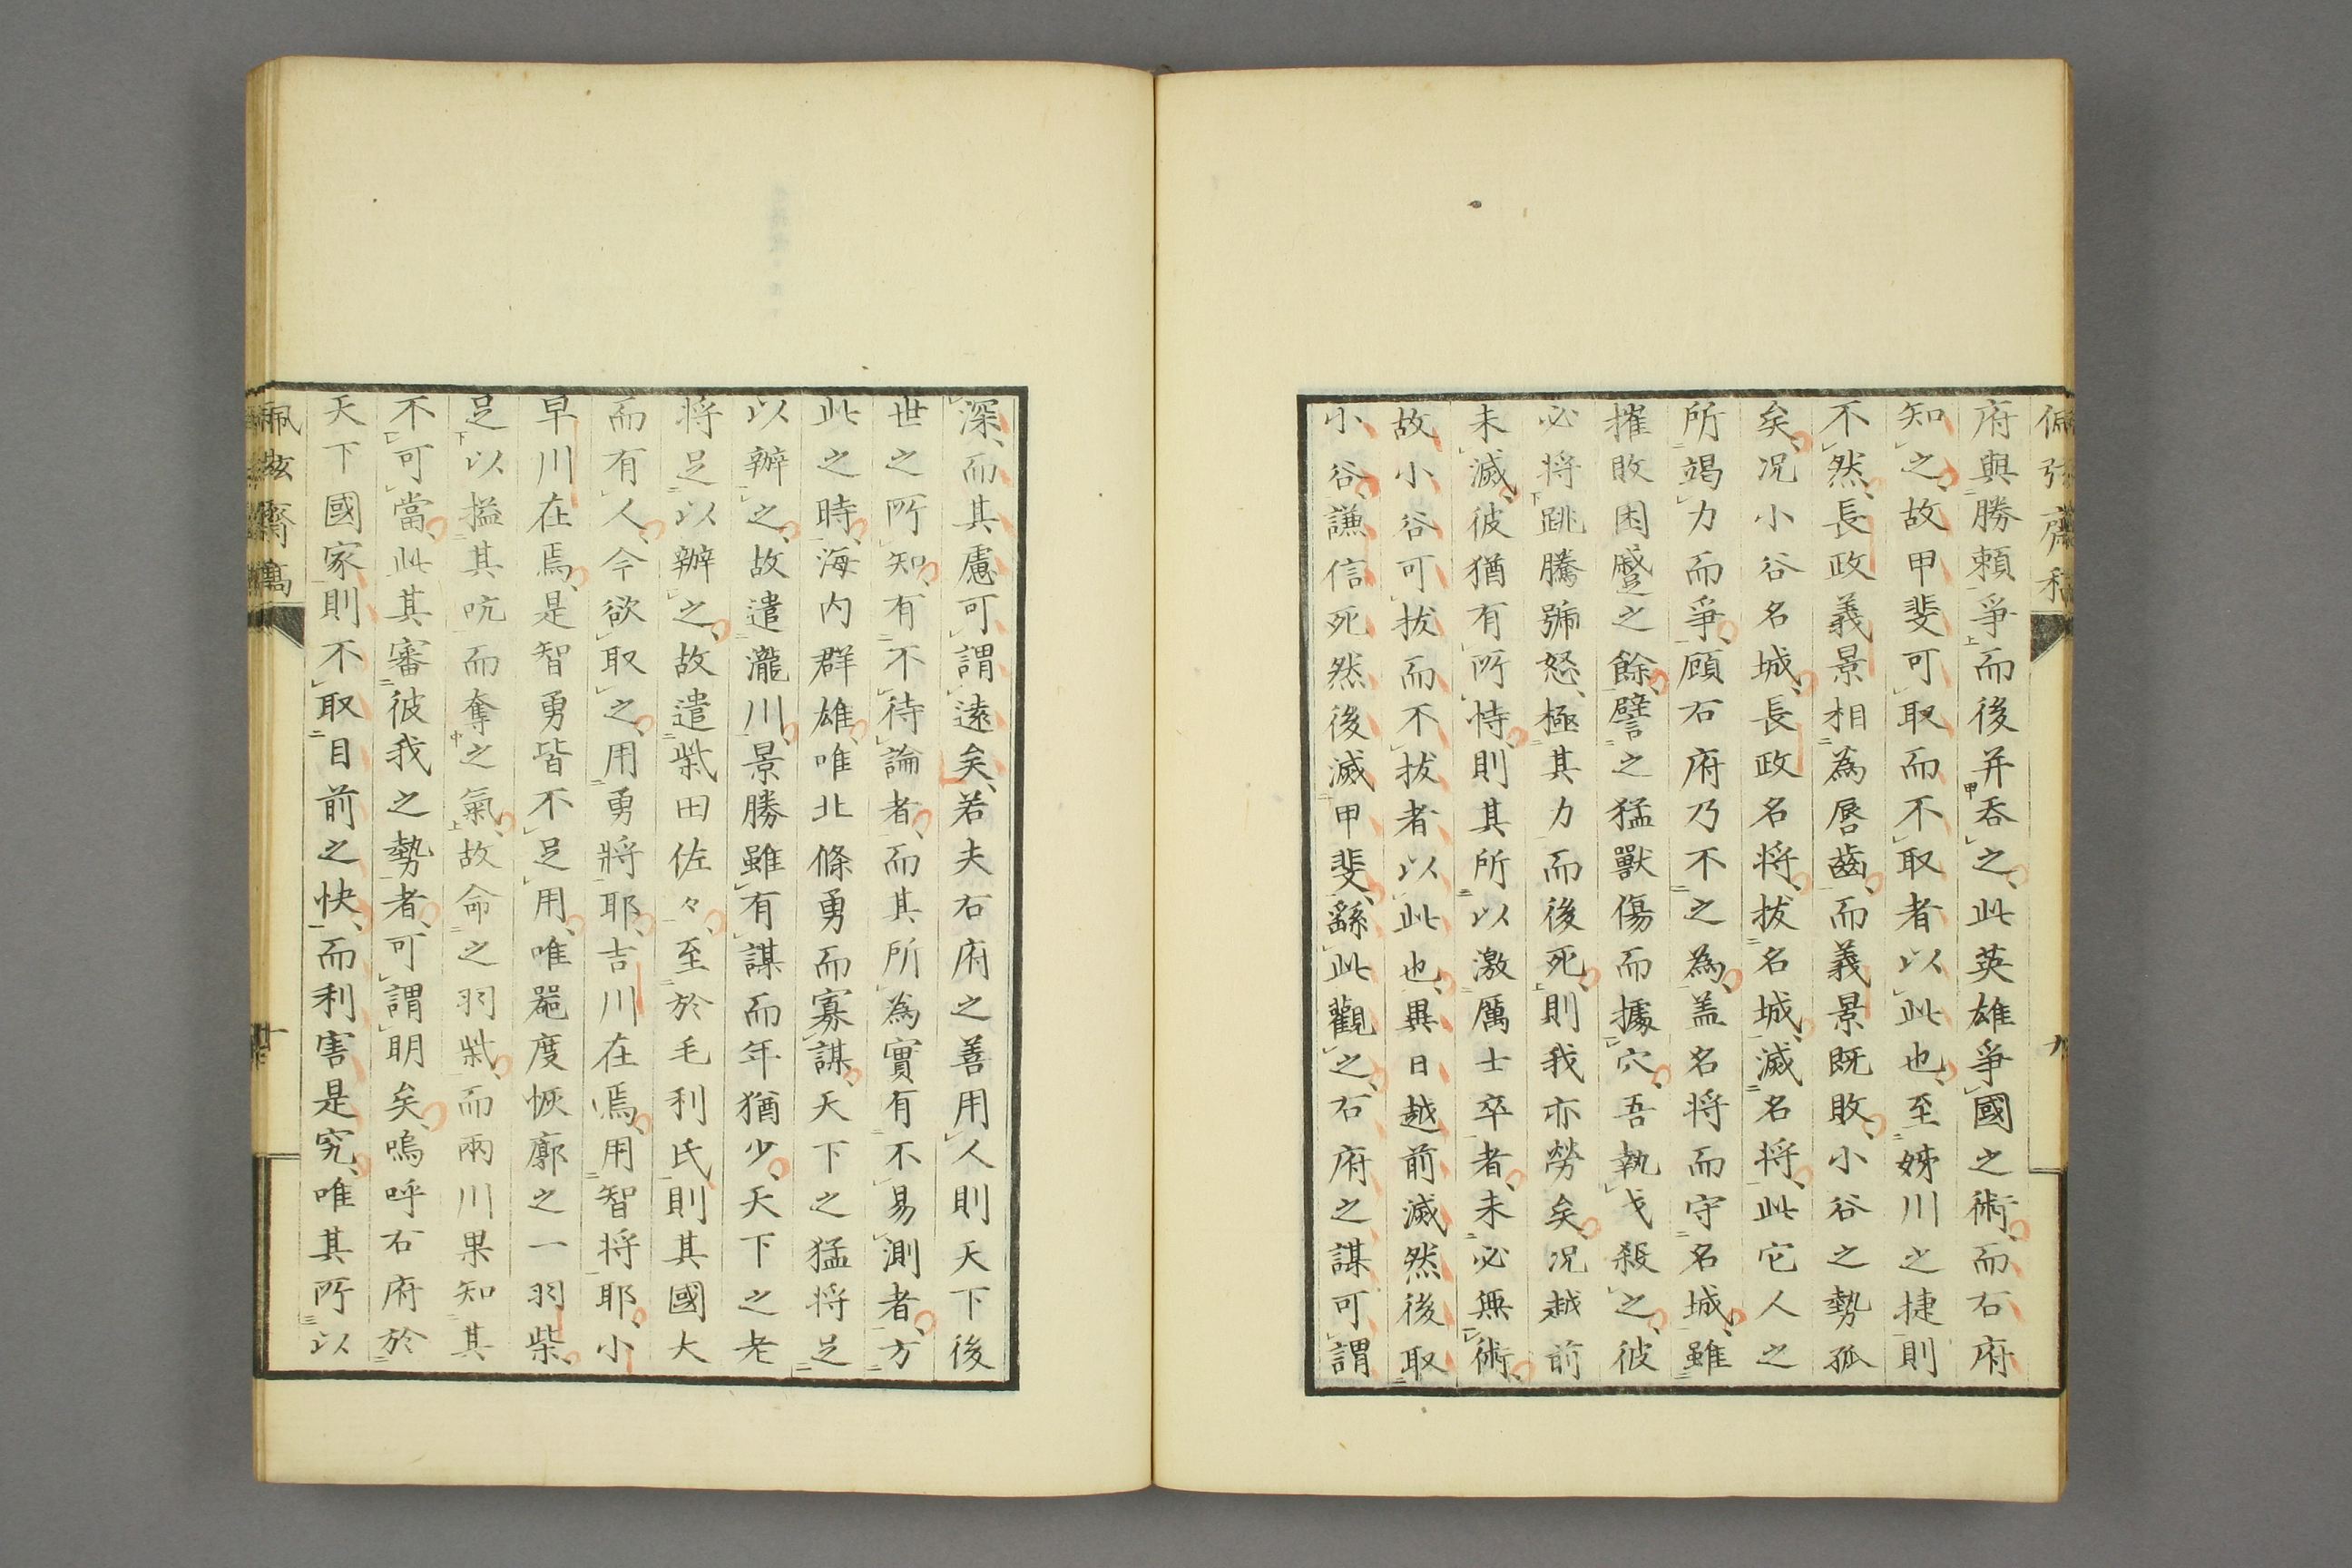 府與勝賴爭而後并吞之此英雄爭國之術而石府
知之故甲斐可取而不取者以此也至姊川之捷則
不然長政義景相為唇齒而義景既敗小谷之勢孤
矣况小谷名城長政名将拔名城滅名将此它人之
所竭力而爭顧石府乃不之為盖名将而守名城雖
摧敗困蹙之餘譬之猛獸傷而據穴吾執戈殺之彼
必将跳騰號怒極其力而後死則我亦勞矣况越前
未滅彼猶有所恃則其所以激厲士卒者未必無術
故小谷可拔而不拔者以此也異日越前滅然後取
小谷謙信死然後滅甲斐繇此觀之石府之謀可謂
深而其慮可謂遠矣若夫石府之善用人則天下後
世之所知有不待論者而其所為實有不易測者方
此之時海内群雄唯北條勇而寡謀天下之猛将足
以辦之故遣瀧川景勝雖有謀而年猶少天下之老
将足以辦之故遣柴田佐々至於毛利氏則其國大
而有人今欲取之用勇將耶吉川在焉用智将耶小
早川在焉是智勇皆不足用唯器度恢廓之一羽柴
足以搤其吭而奪之氣故命之羽柴而兩川果知其
不可當此其審彼我之勢者可謂明矣嗚呼石府於
天下國家則不取目前之快而利害是究唯其所以